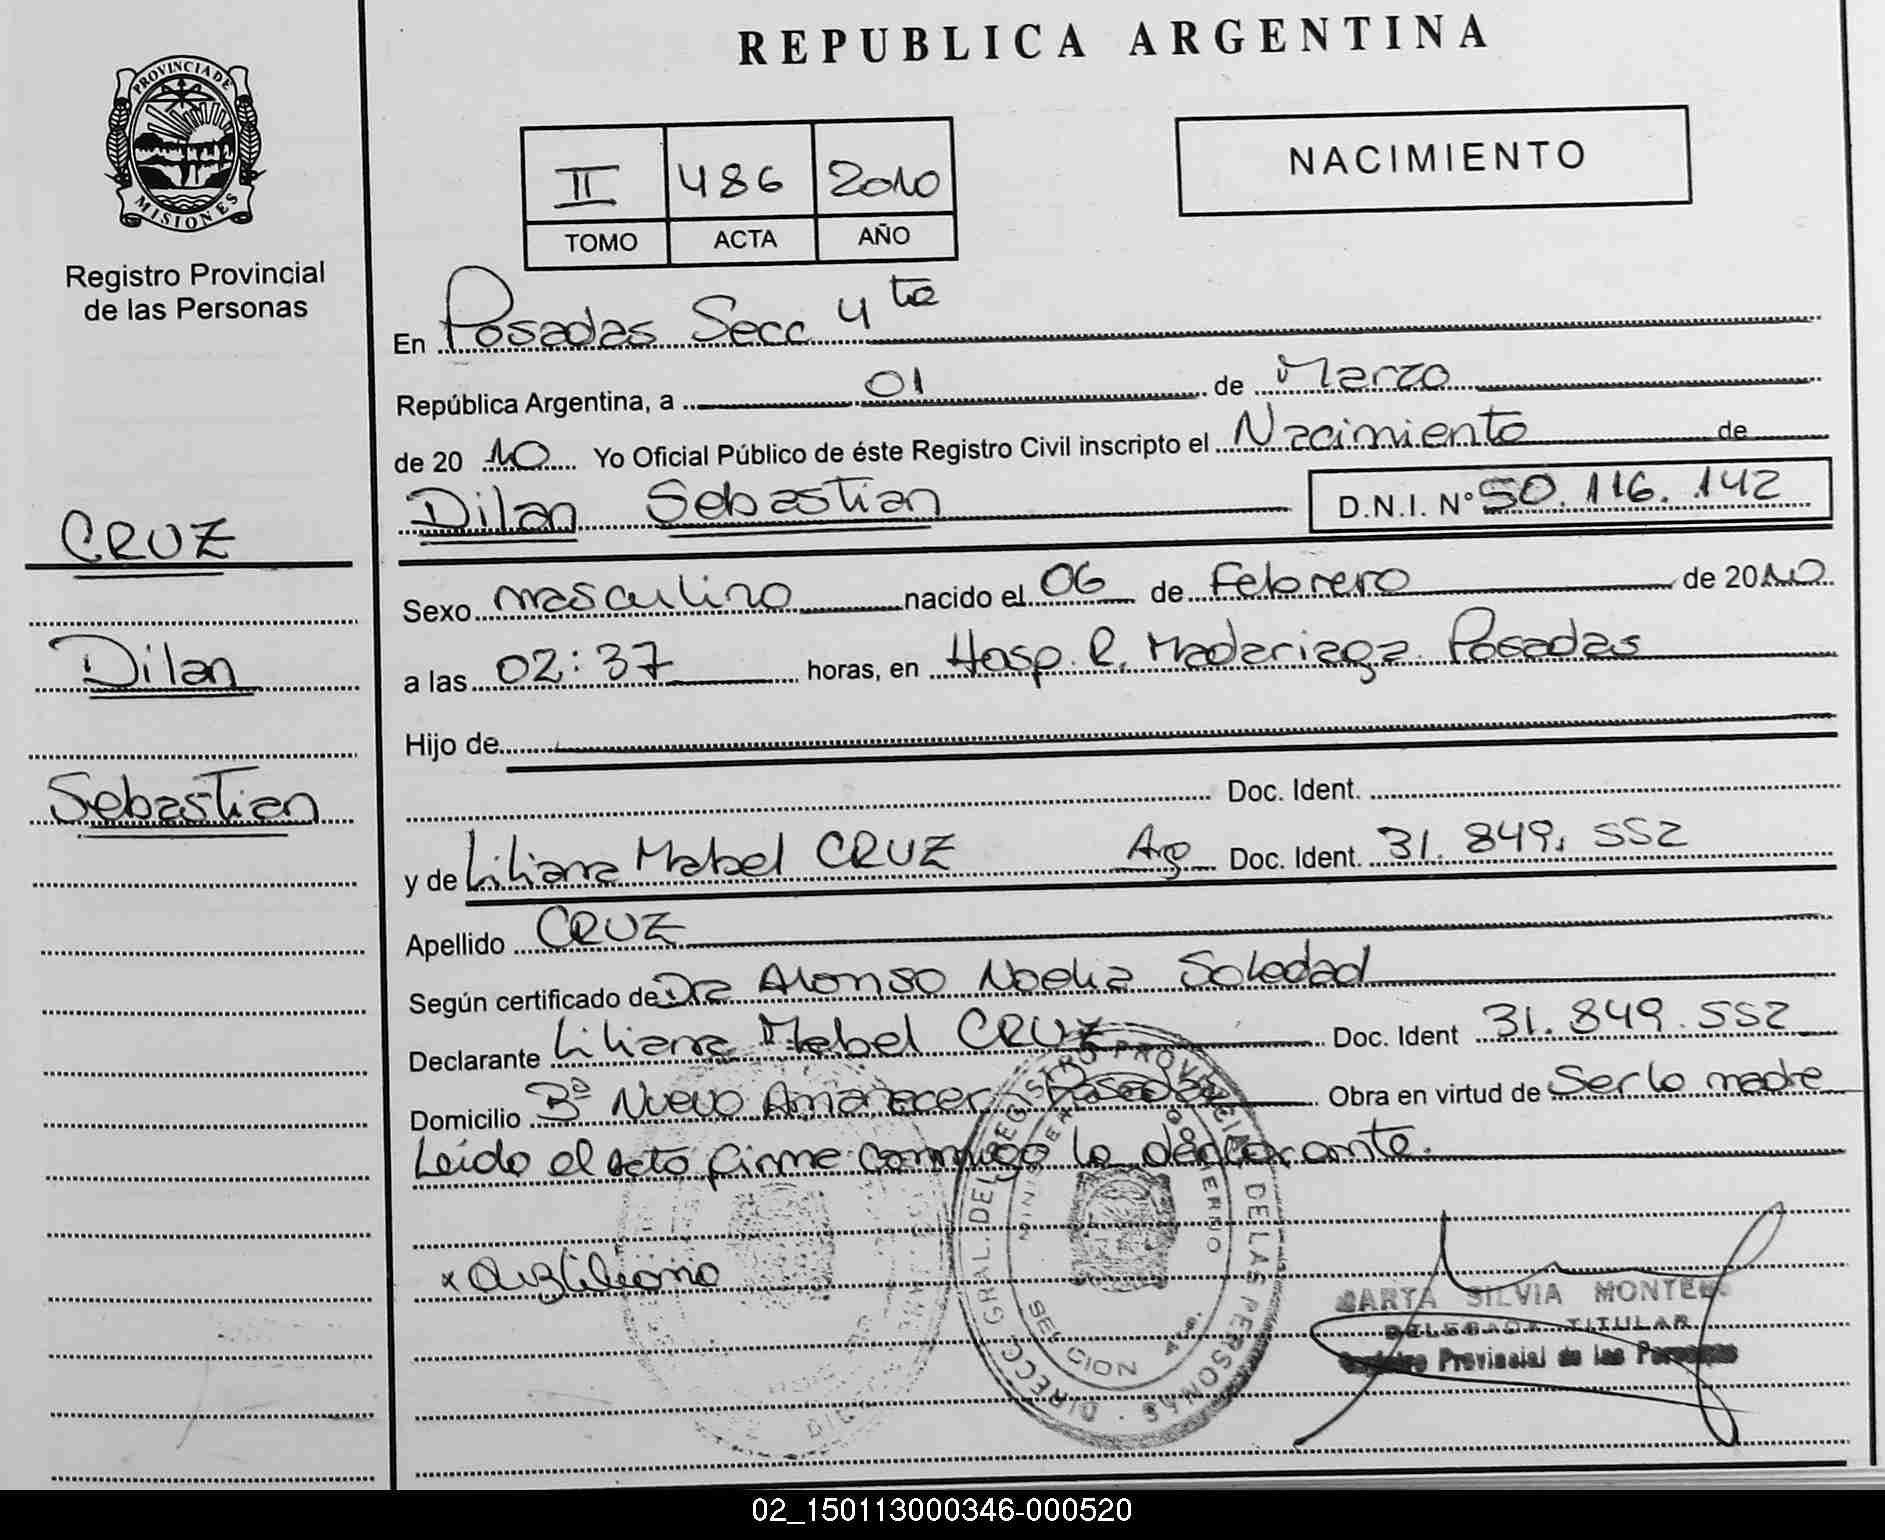 REPUBLICA ARGENTINA
PROVINCIA DE
MISIONES
Registro Provincial
de las Personas
II 486 2010
TOMO ACTA AÑO
NACIMIENTO
En Posadas Secc 4ta
República Argentina, a 01 de Marzo
de 2010 Yo Oficial Público de éste Registro Civil inscripto el Nacimiento de
Dilan Sebastian D.N.I. N° 50.116.142
CRUZ
Dilan
Sebastian
Sexo masculino nacido el 06 de Febrero de 2010
a las 02:37 horas, en Hosp. R. Madariaga Posadas
Hijo de
Doc. Ident.
y de Liliana Mabel CRUZ Arg Doc. Ident. 31.849.552
Apellido CRUZ
Según certificado de Dra Alonso Noelia Soledad
Declarante Liliana Mabel CRUZ Doc. Ident 31.849.552
Domicilio Bº Nuevo Amanecer Posadas Obra en virtud de Ser la madre
Leído el acta firma conmigo la declarante.
DIRECC. GRAL. DEL REGISTRO PROVINCIAL DE LAS PERSONAS
MINISTERIO GOBIERNO
SECCION 4
x Cruz Liliana
MARTA SILVIA
DELEGADA TITULAR
Registro Provincial de las Personas
02_150113000346-000520